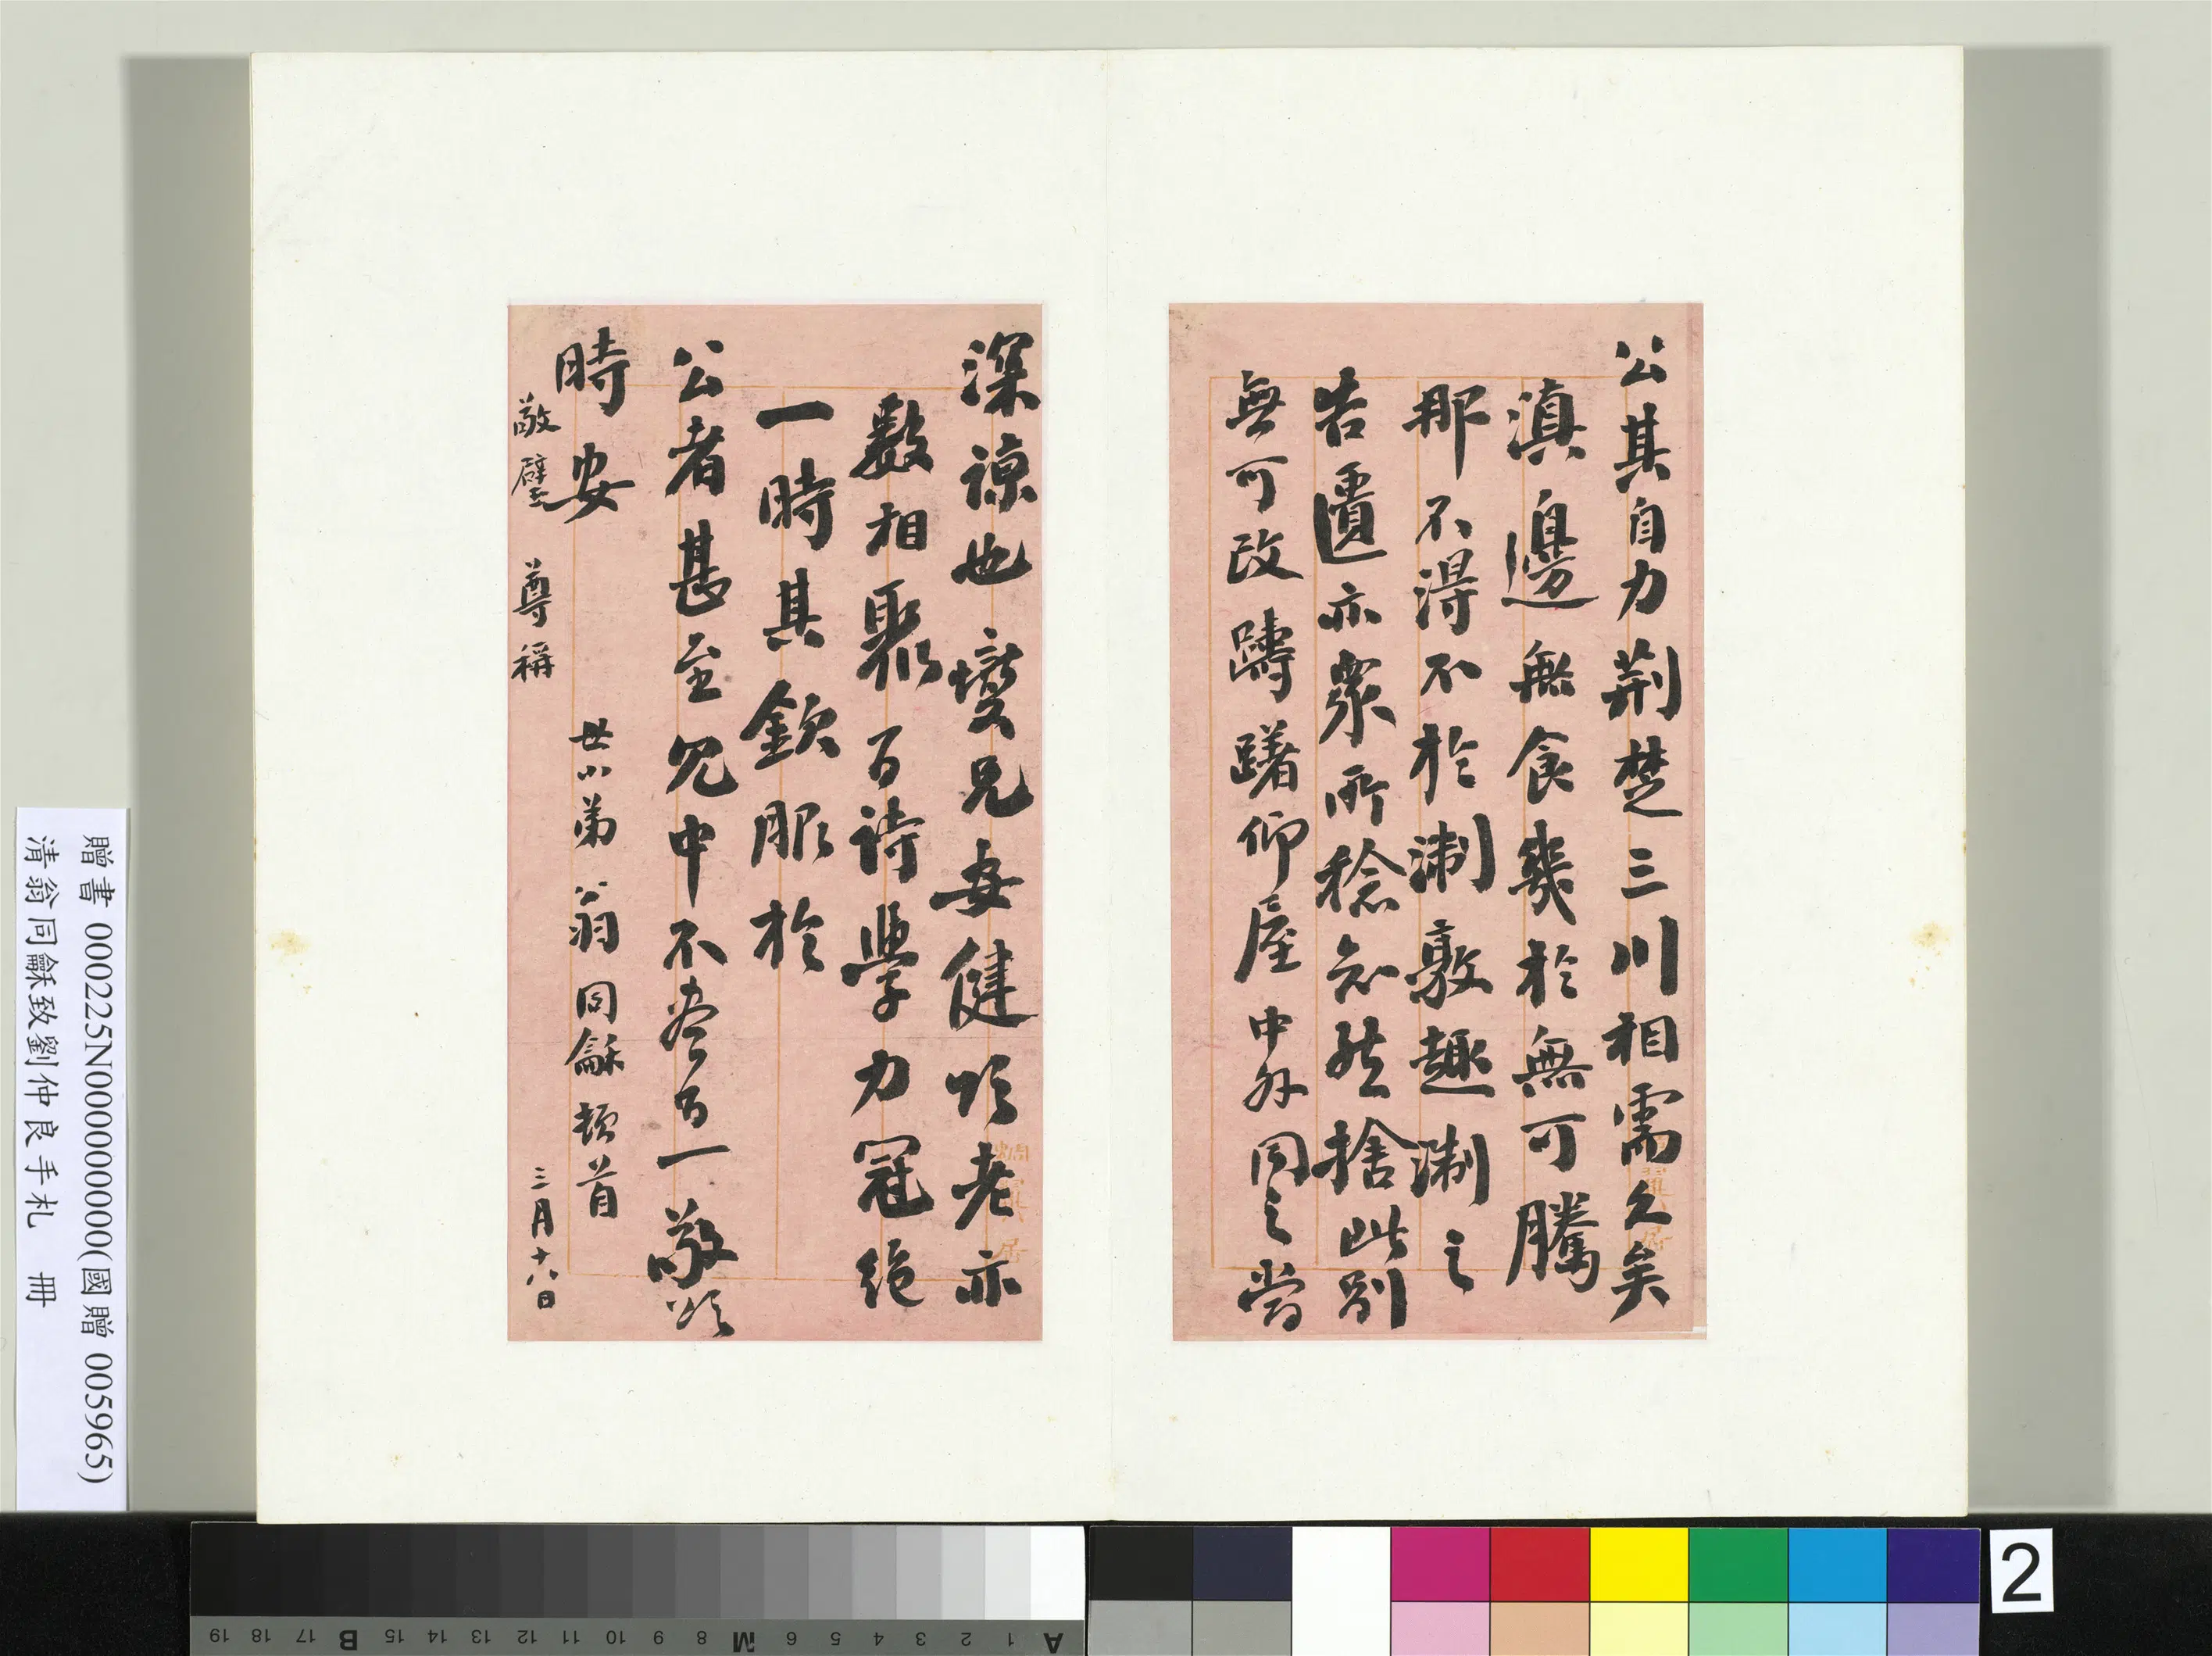 公其自力荊楚三川相需久矣
滇邊無食幾於無可騰
那不得不於淛敦趣淛之
告匱亦眾所稔知然捨此別
無可改躊躇仰屋中外同之當
深諒也燮兄安健頌老亦
數相聚百詩學力冠絕
一時其欽服於
公者甚至兄中不盡百一敬頌
時安
世小弟翁同龢頓首
敬璧 尊稱
三月十八日
贈書 000225N000000000(國贈 005965)
清翁同龢致劉仲良手札 冊
2
A 1 2 3 4 5 6 M 8 9 10 11 12 13 14 15 B 17 18 19